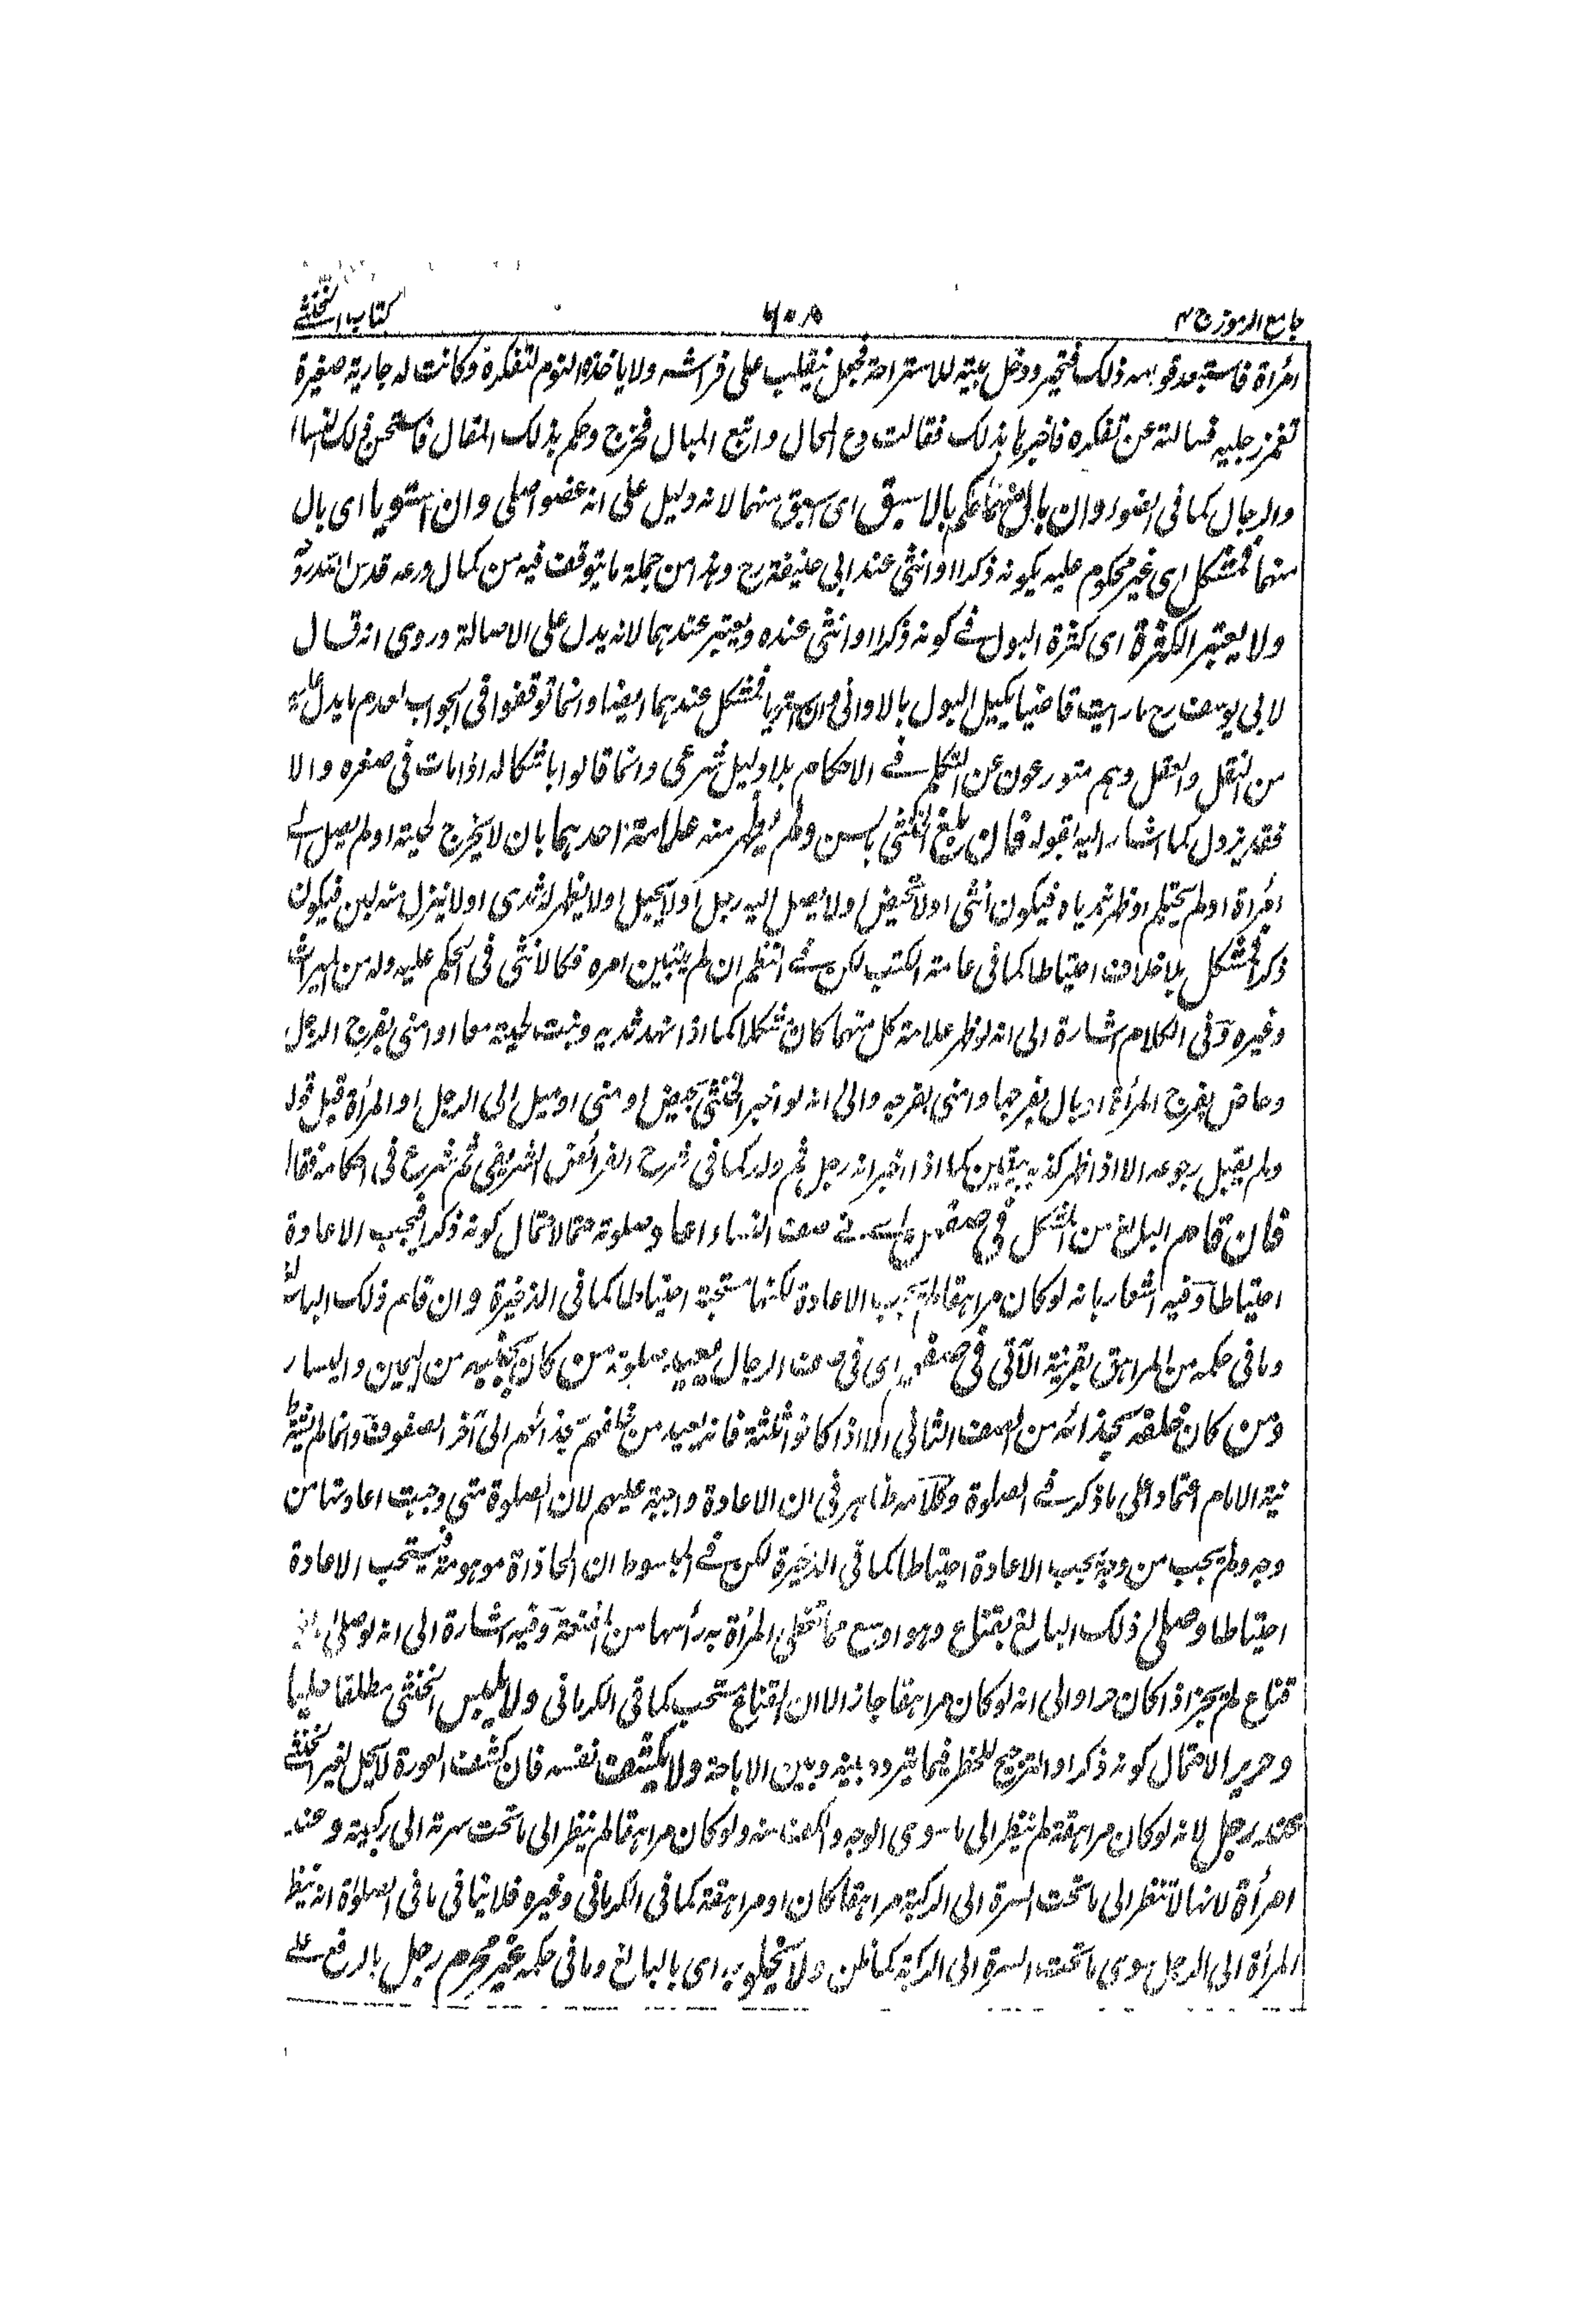 جامع الرموز ج ٤ ٦٠٨ كتاب الخنثى
امرأة فاستبعد قومه ذلك فتحير ودخل بيته للاستراحة فجعل يتقلب على فراشه ولا ياخذه النوم لتفكره وكانت له جارية صغيرة
تغمز رجليه فسالته عن تفكره فاخبرها بذلك فقالت دع الحال واتبع المبال فخرج وحكم بذلك المقال فاستحسن ذلك النساء
والرجال كما في المضمرات وان بال منهما حكم بالاسبق اى سبق منهما لانه دليل على انه عضو اصلى وان استويا اى بال
منهما فمشكل اى غير محكوم عليه بكونه ذكرا او انثى عند ابى حنيفة رح وهذا من جملة ما يتوقف فيه من كمال ورعه قدس الله روحه
ولا يعتبر الكثرة اى كثرة البول فى كونه ذكرا او انثى عنده ويعتبر عندهما لانه يدل على الاصالة وروى انه قال
لابى يوسف رح ما رايت قاضيا يكيل البول بالاوانى وان استويا فمشكل عندهما ايضا وانما توقفوا فى الجواب لعدم ما يدل عليه
من النقل والعقل وهم متورعون عن التكلم فى الاحكام بلا دليل شرعى وانما قالوا باشكاله اذا مات فى صغره والا
فقد يزول كما اشار اليه بقوله فان بلغ الخنثى بالسن ولم يظهر منه علامة احدهما بان لا يخرج لحيته او لم يصل الى
امرأة او لم يحتلم او ظهر ثدياه فيكون انثى او لا تحيض او لا يصل اليه رجل او لا يحبل او لا يظهر له ثدى او لا ينزل منه لبن فيكون
ذكرا فمشكل بلا خلاف احتياطا كما فى عامة الكتب لكن فى النظم ان لم يتبين امره فكالانثى فى الحكم عليه وله من الميراث
وغيره وفى الكلام اشارة الى انه لو ظهر علامة كل منهما كان مشكلا كما اذا نهد ثدييه ونبت لحيته معا او امنى بفرج الرجل
وحاض بفرج المرأة او بال بفرجها وامنى بفرجه والى انه لو اخبر الخنثى بحيض او منى او ميل الى الرجل او المرأة قبل قوله
ولم يقبل رجوعه الا اذا ظهر كذبه بيقين كما اذا اخبر انه رجل ثم ولد كما فى شرح الفرائض الشريفى ثم شرع فى احكامه فقال
فان قام البالغ من المشكل فى صفهن اى فى صف النساء اعاد صلوته حتما لاحتمال كونه ذكرا فيجب الاعادة
احتياطا وفيه اشعار بانه لو كان مراهقا لم تجب الاعادة لكنها مستحبة احتياطا كما فى الذخيرة وان قام ذلك البالغ
وما فى حكمه من المراهق بقرينة الآتى فى صفهم اى فى صف الرجال يعيد صلوته من كان بجنبيه من اليمين واليسار
ومن كان خلفه بحذائه من الصف الثانى الا اذا كانوا ثلثة فانه يعيد من خلفهم بحذائهم الى آخر الصفوف وانما لم يشترط
نية الامام اعتمادا على ما ذكر فى الصلوة وكلامه ظاهر فى ان الاعادة واجبة عليهم لان الصلوة متى وجبت اعادتها من
وجه ولم تجب من وجه تجب الاعادة احتياطا كما فى الذخيرة لكن فى المبسوط ان المحاذاة موهومة فيستحب الاعادة
احتياطا وصلى ذلك البالغ بقناع وهو اوسع مما تغطى المرأة به رأسها من المقنعة وفيه اشارة الى انه لو صلى
قناع لم يجز اذا كان حرا والى انه لو كان مراهقا جاز الا ان القناع مستحب كما فى الكرمانى ولا يلبس الخنثى مطلقا حليا
وحرير الاحتمال كونه ذكرا والترجيح للحظر فيما تردد بينه وبين الاباحة ولا يكشف نفسه فان كشف العورة لا يحل لغير الخنثى
عند رجل لانه لو كان مراهقة لم ينظر الى ما سوى الوجه والكف منه ولو كان مراهقا لم ينظر الى ما تحت سرته الى ركبيته وعند
امرأة لانها لا تنظر الى ما تحت السرة الى الركبة مراهقا كان او مراهقة كما فى الكرمانى وغيره فلا ينافى ما فى الصلوة انه ينظر
المرأة الى الرجل سوى ما تحت السرة الى الركبة كما ظن ولا يخلو به اى بالبالغ وما فى حكمه غير محرم رجل بالرفع على